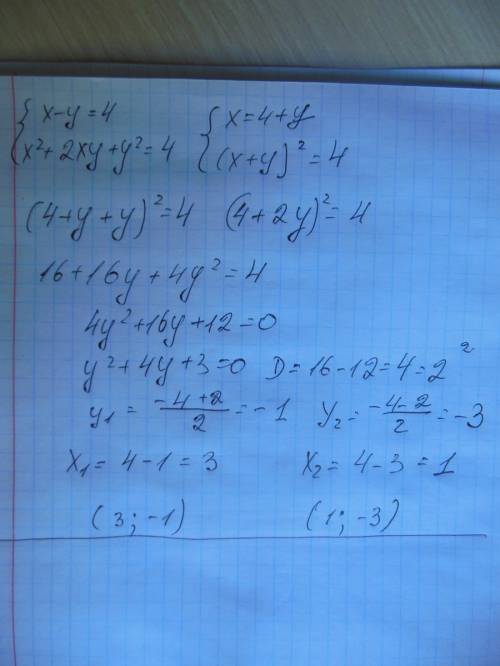 { x-y=4   { x=4+y
x²+2xy+y²=4   (x+y)²=4
(4+y+y)²=4   (4+2y)²=4
16+16y+4y²=4
4y²+16y+12=0
y²+4y+3=0   D=16-12=4=2²
y₁ = (-4+2)/2 = -1   y₂ = (-4-2)/2 = -3
x₁ = 4-1 = 3   x₂ = 4-3 = 1
(3; -1)   (1; -3)